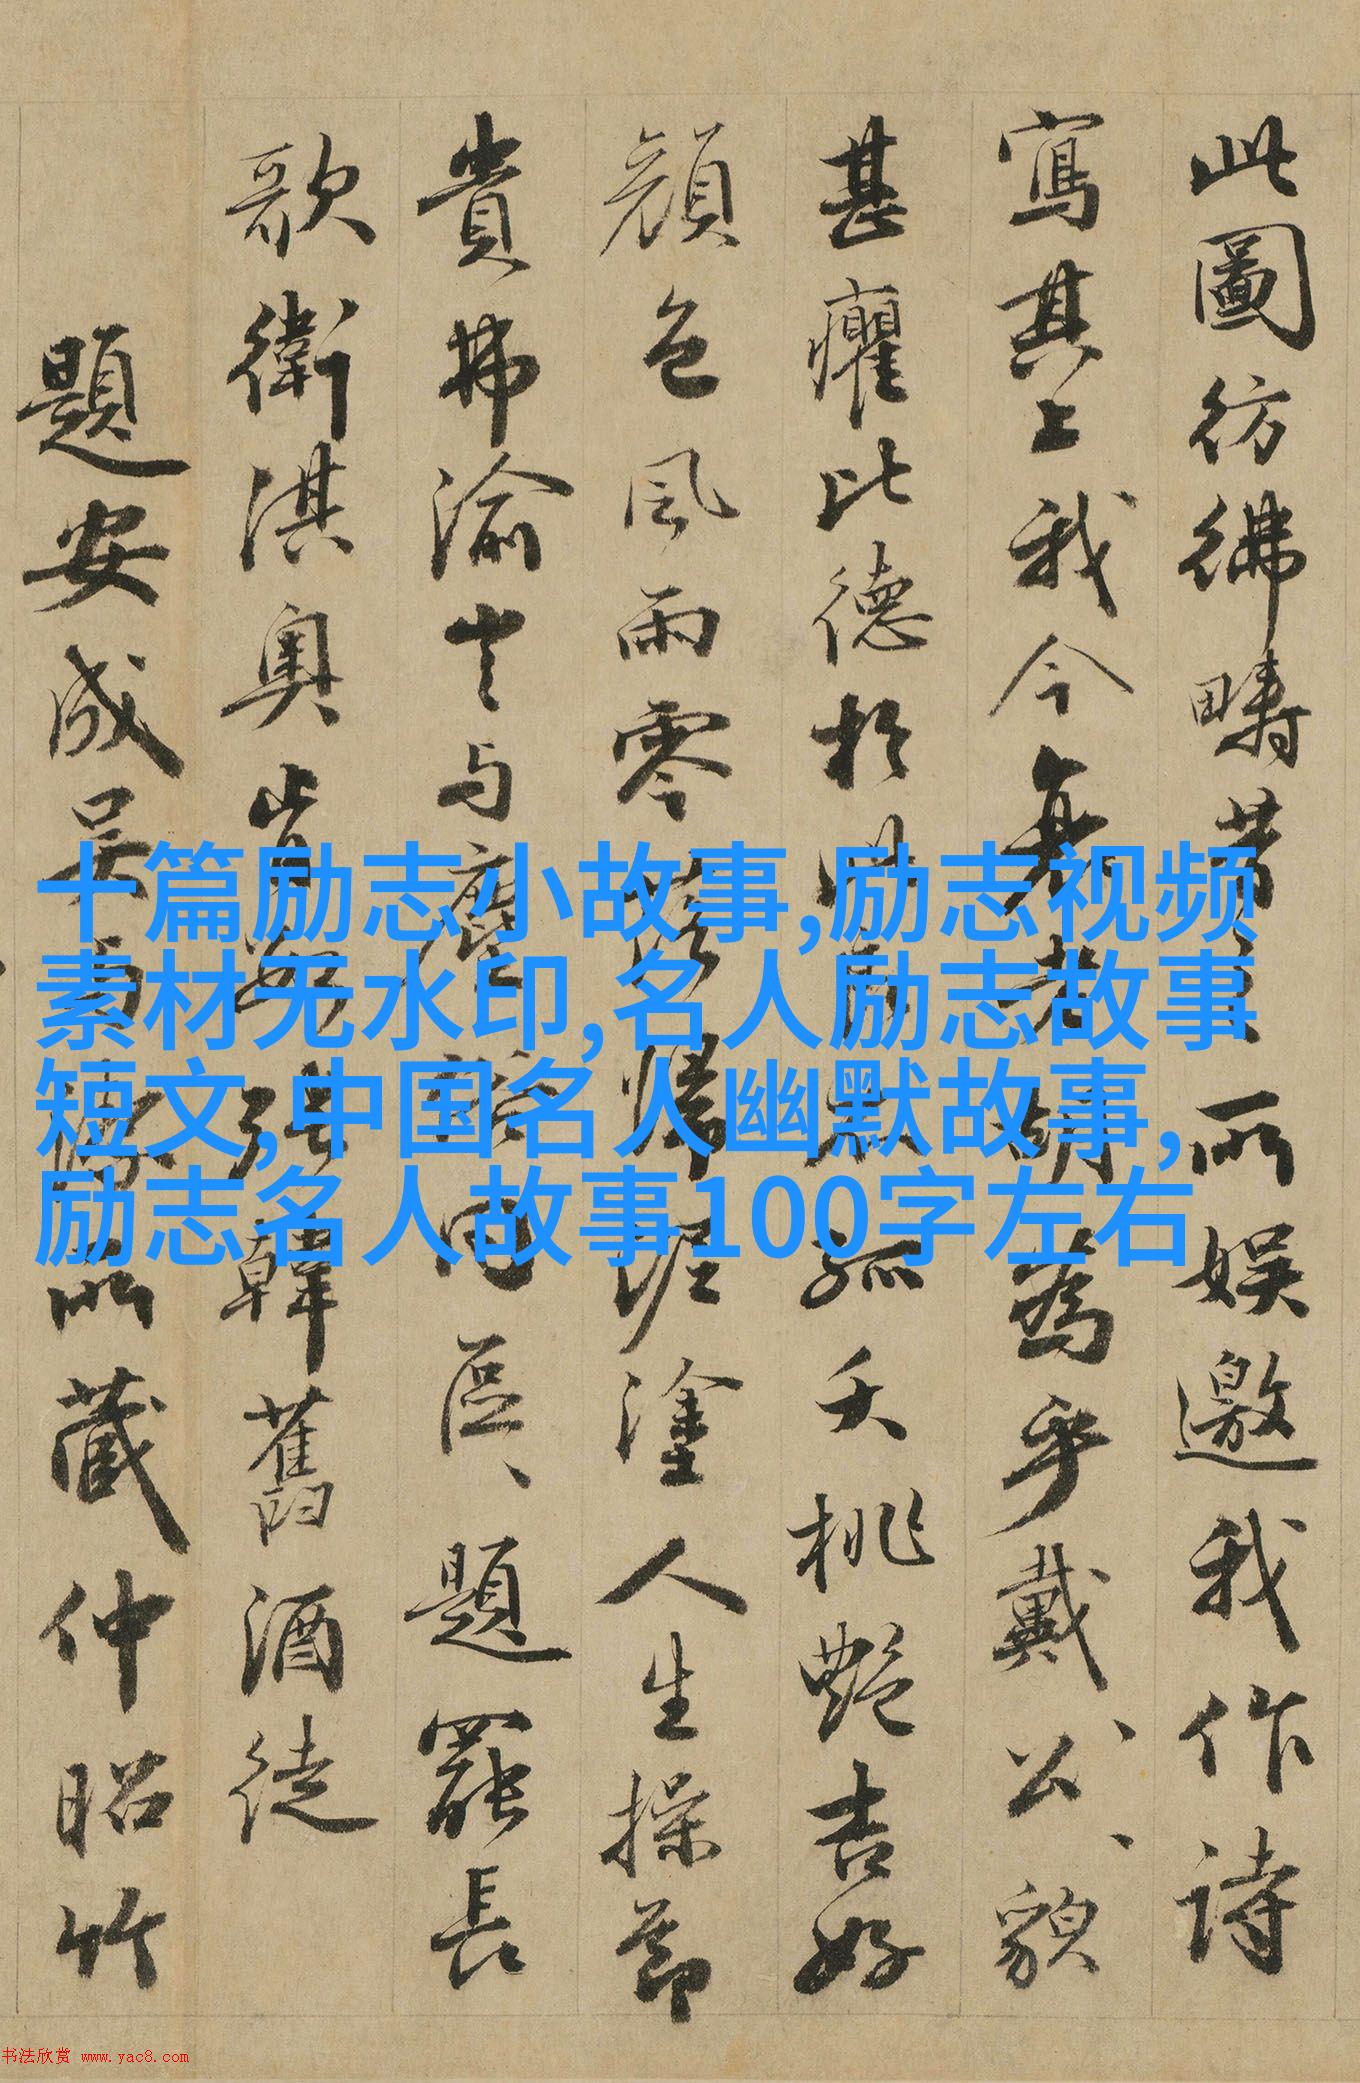 此圖彷彿疇昔
所娛邀我作詩
寫其上我今
老
為乎戴公貌
甚癯比德於
孤夭桃艷吉好
顏色風雨零
塗人生操節
貴弗渝
与
區題罷長
歌衛淇奧皆
韓舊酒徒
題安成吴
所藏仲昭竹
十篇励志小故事,励志视频
素材无水印,名人励志故事
短文,中国名人幽默故事,
励志名人故事100字左右
书法欣赏 www.yac8.com